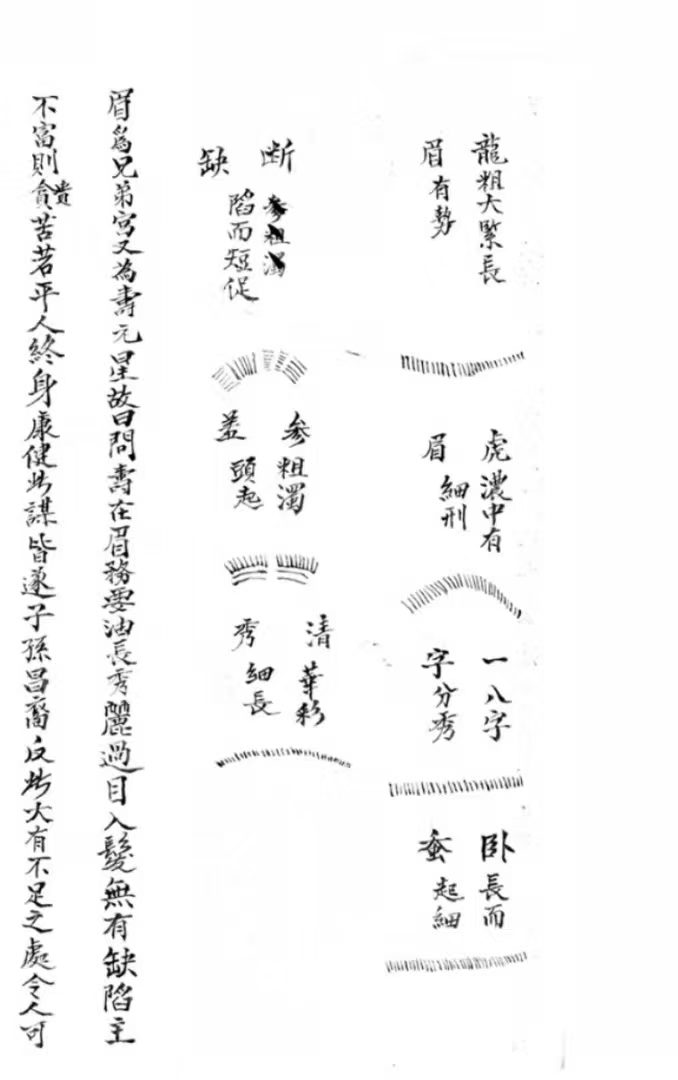 龍粗大緊長
眉有勢
虎濃中有
眉細刑
一八字
字分秀
卧長而
蚕起細
断參粗濁
缺陷而短促
參粗濁
盖頭起
清華彩
秀細長
眉爲兄弟宮又為壽元星故曰問壽在眉務要油長秀麗過目入髮無有缺陷主
不富則貪貴苦若平人終身康健此謀皆遂子孫昌裔反此大有不足之處令人可